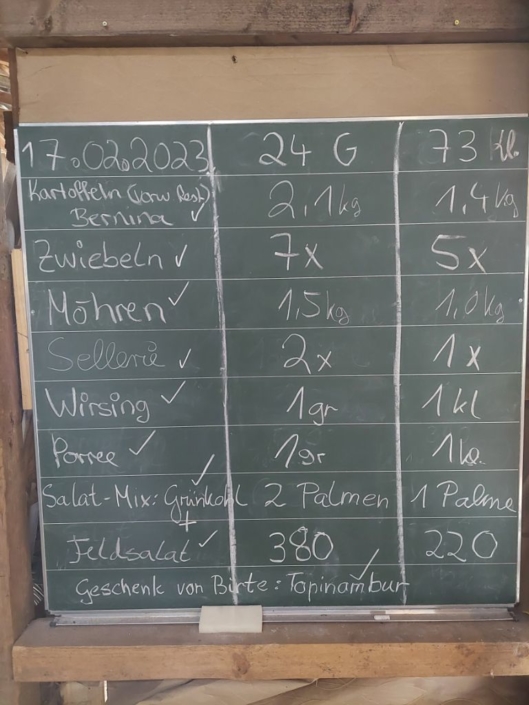 17.02.2023 24 G 73 Kl.
Kartoffeln (vorw. fest)
Bernina ✓ 2,1kg 1,4kg
Zwiebeln ✓ 7x 5x
Möhren ✓ 1,5kg 1,0kg
Sellerie ✓ 2x 1x
Wirsing ✓ 1gr 1kl
Porree ✓ 1gr 1kl.
Salat-Mix: Grünkohl ✓ 2 Palmen 1 Palme
+
Feldsalat ✓ 380 220
Geschenk von Birte: Topinambur ✓